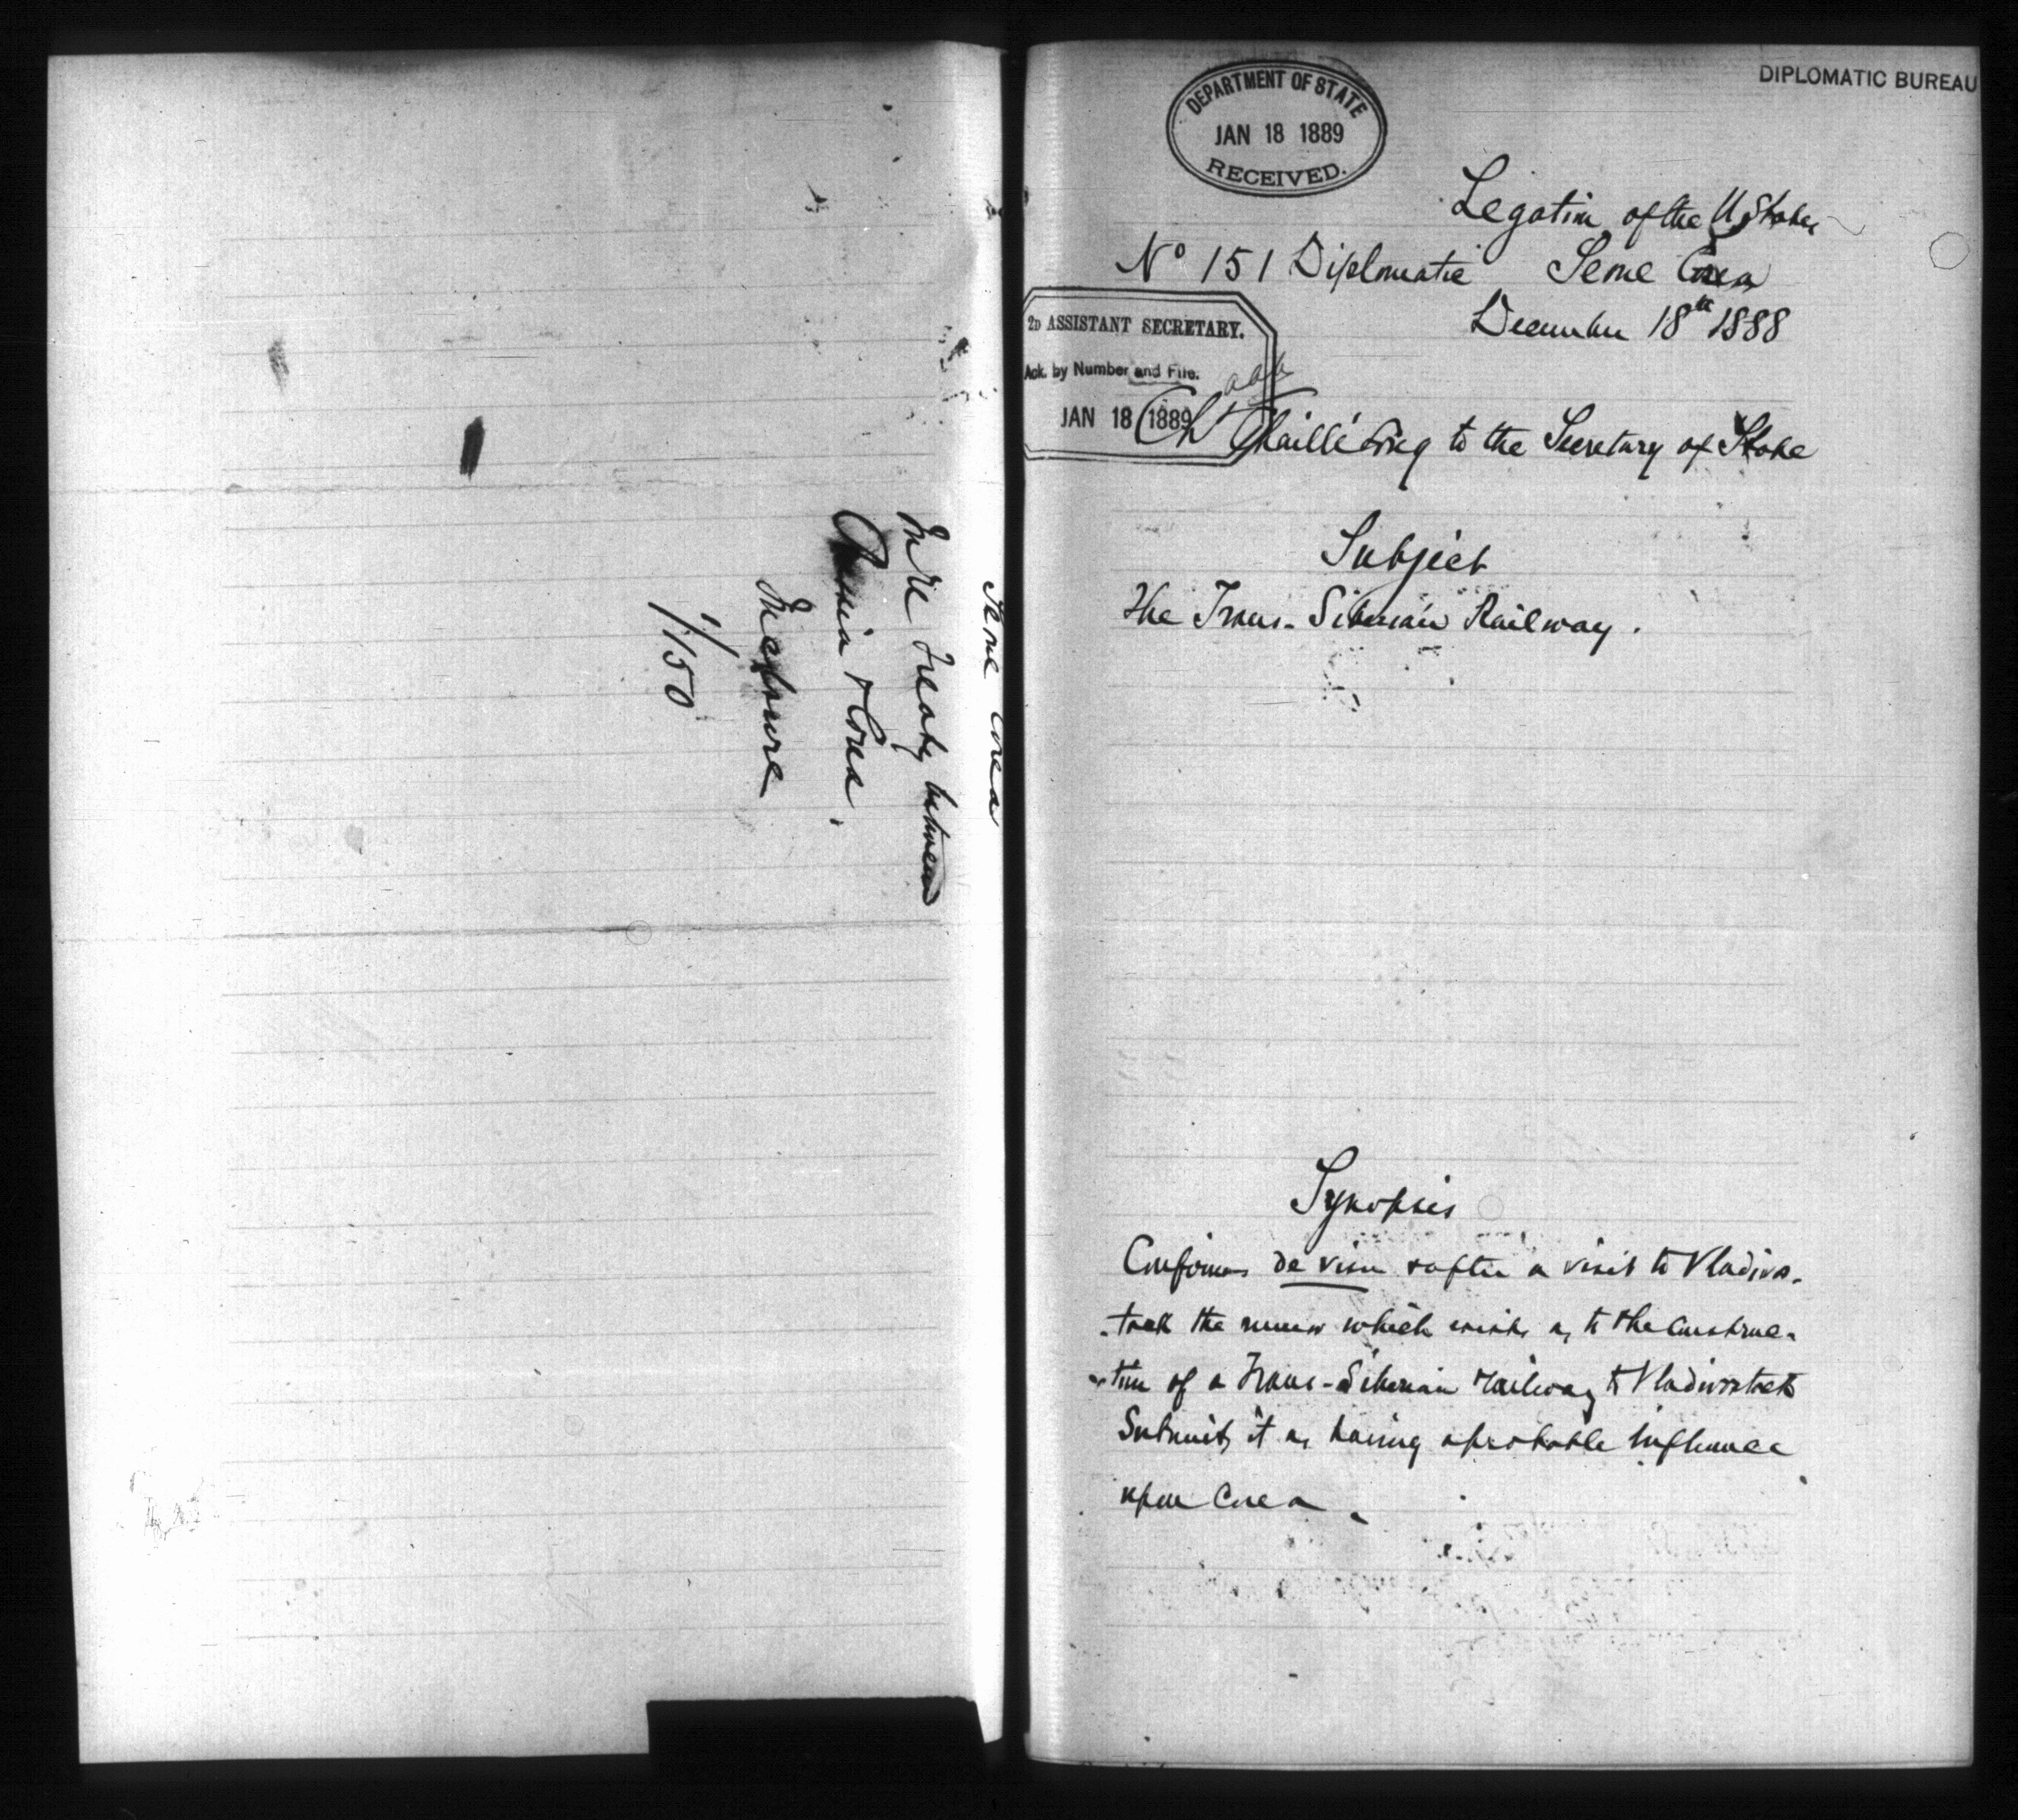 Seoul Corea
In re Treaty between
Russia & Corea.
Inclosure
1/150
DIPLOMATIC BUREAU
DEPARTMENT OF STATE
JAN 18 1889
RECEIVED.
Legation of the U States
No 151 Diplomatic Seoul Corea
December 18th 1888
2D ASSISTANT SECRETARY.
Ack. by Number and File.
JAN 18 1889
Ch Chaillé Long to the Secretary of State
Subject
The Trans-Siberian Railway.
Synopsis
Confirms de visu & after a visit to Vladivo-
-stock the rumor which exists as to the construc-
-tion of a Trans-Siberian railway to Vladivostock
Submits it as having a probable influence
upon Corea.